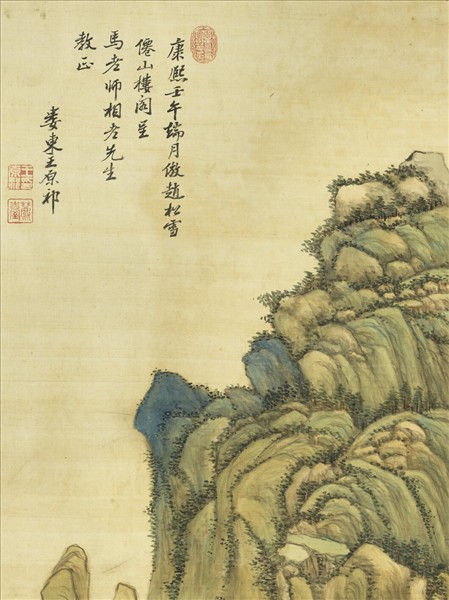 康熙壬午端月倣趙松雪
僊山樓閣呈
馬老师相老先生
教正
婁東王原祁